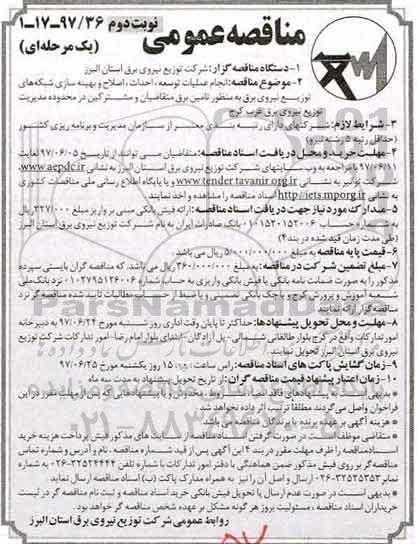 مناقصه عمومی
نوبت دوم ۹۷/۳۶-۱۷-۱
(یک مرحله‌ای)
۱-دستگاه مناقصه گزار: شرکت توزیع نیروی برق استان البرز
۲-موضوع مناقصه: انجام عملیات توسعه، احداث، اصلاح و بهینه سازی شبکه‌های
توزیع نیروی برق به منظور تامین برق متقاضیان و مشترکین در محدوده مدیریت
توزیع نیروی برق غرب کرج
۳-شرایط لازم: شرکتهای دارای رتبه بندی معتبر از سازمان مدیریت و برنامه ریزی کشور
(حداقل رتبه ۵ رشته نیرو)
۴-مهلت خرید و محل دریافت اسناد مناقصه: متقاضیان می توانند از تاریخ ۹۷/۰۶/۰۵ لغایت
۹۷/۰۶/۱۱ با مراجعه به وب سایتهای شرکت توزیع نیروی برق استان البرز به نشانی www.aepdc.ir
شرکت توانیر به نشانی www.tender.tavanir.org.ir و یا پایگاه اطلاع رسانی ملی مناقصات کشوری
به نشانی http://iets.mporg.ir اسناد مناقصه را مشاهده و اخذ نمایند
۵-مدارک مورد نیاز جهت دریافت اسناد مناقصه: ارائه فیش بانکی مبنی بر واریز مبلغ ۳۲۷/۰۰۰ ریال
به شماره حساب ۰۱۰۱۵۲۰۱۵۲۰۰۶ بانک صادرات ایران به نام شرکت توزیع نیروی برق استان البرز
(طی مدت زمان قید شده در بند ۴)
۶-قیمت پایه مناقصه به مبلغ ۵/۰۰۰/۰۰۰/۰۰۰ ریال می باشد
۷-مبلغ تضمین شرکت در مناقصه: به مبلغ ۳۶۰/۰۰۰/۰۰۰ ریال می باشد، که مناقصه گران بایستی سپرده
مذکور را به صورت ضمانت نامه بانکی یا فیش بانکی واریزی به حساب شماره ۰۱۰۲۷۹۵۱۳۶۰۰۶ نزد بانک ملی
شعبه آموزش و پرورش کرج و یا چک بانکی تضمینی و یا ضبط از حساب مطالبات تایید شده مناقصه گر نزد
مناقصه گزار ارائه نمایند
۸-مهلت و محل تحویل پیشنهادها: حداکثر تا پایان وقت اداری روز شنبه مورخ ۹۷/۰۶/۲۴ به دبیرخانه
امور تدارکات واقع در کرج بلوار طالقانی شمالی-پل آزادگان-ابتدای بلوار امام رضا-امور تدارکات شرکت توزیع
نیروی برق استان البرز تحویل نمایند
۹-زمان گشایش پاکت های اسناد مناقصه: راس ساعت ۱۵ روز یکشنبه مورخ ۹۷/۰۶/۲۵
۱۰-زمان اعتبار پیشنهاد قیمت مناقصه گران: از تاریخ تحویل پیشنهاد به مدت سه ماه
بدیهی است به پیشنهادهای فاقد سپرده، امضاء، مشروط، مخدوش و یا پیشنهادهایی که پس از مهلت مقرر در این
فراخوان واصل می گردند مطلقا ترتیب اثر داده نخواهد شد
هزینه آگهی بر عهده برنده یا برندگان مناقصه می باشد
متقاضی موظف است در صورت گرفتن اسناد مناقصه از سایت های مذکور فیش پرداخت هزینه خرید
اسناد مناقصه را ظرف مهلت مقرر در بند ۴ این آگهی پس از قید شماره مناقصه، نام و آدرس و شماره تماس
مناقصه گر بر روی فیش مذکور ضمن هماهنگی با دفتر امور تدارکات با شماره تلفن ۳۲۵۲۴۴۴۴-۰۲۶ به شماره
نمابر ۳۲۵۲۵۳۵۳-۰۲۶ ارسال و اصل آن را نیز به همراه مدارک پاکت (ب) اسناد مناقصه ارسال نماید.
بدیهی است در صورت عدم ارسال یا تحویل فیش بانکی خرید اسناد مناقصه و ثبت نام مناقصه گر در لیست
خریداران اسناد مناقصه، مسئولیت بروز هر گونه مشکل بر عهده شخص مناقصه گر خواهد بود
روابط عمومی شرکت توزیع نیروی برق استان البرز